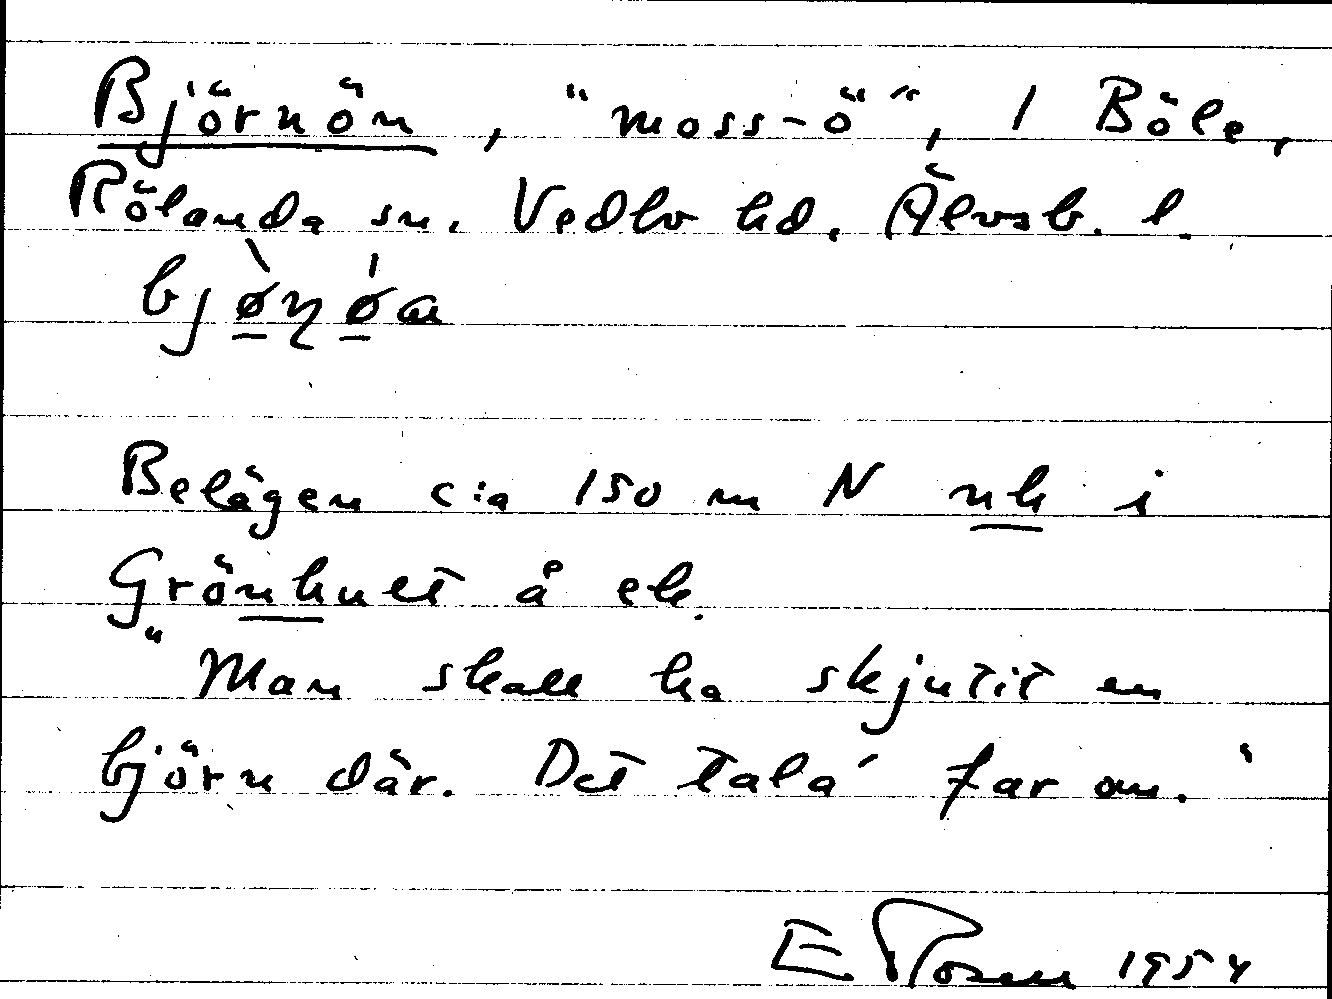 Björnön, "moss-ö", 1 Böle,
Rölanda sn. Vedbo hd. Älvsb. l.
Belägen c:a 150 m N nk i
Grönhult å ek.
"Man skall ha skjutit en
björn där. Det tala' far om."
E. Rosén 1954